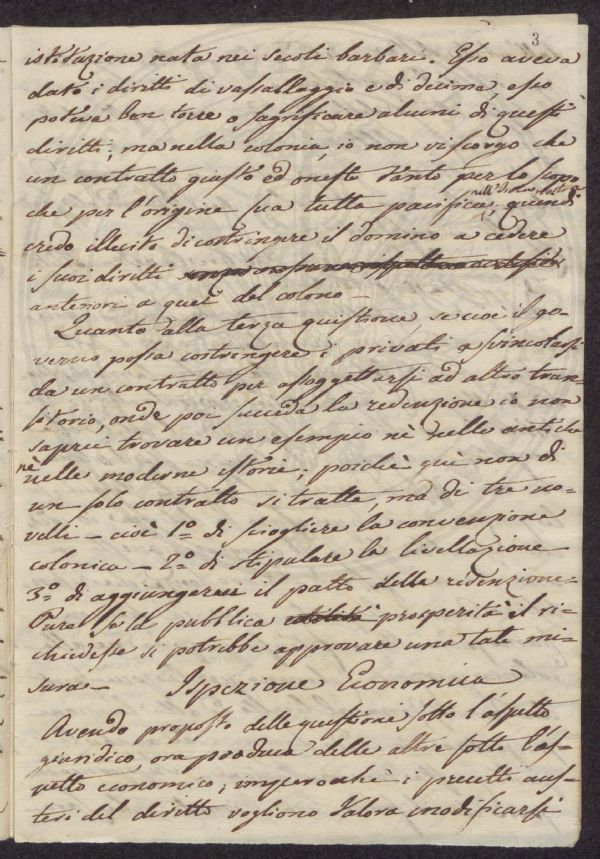 3
istituzione nata nei secoli barbari. Esso aveva
dato i diritti di vassallaggio e di decima, esso
poteva ben torre o sagrificare alcuni di questi
diritti; ma nella colonia, io non vi scorgo che
un contratto giusto ed onesto tanto per lo scopo
che per l'origine sua tutta pacifica; quindi
credo illecito di costringere il domino a cedere
i suoi diritti
anteriori a quei del colono —
Quanto alla terza quistione, se cioè il go-
verno possa costringere i privati a svincolarsi
da un contratto per assoggettarsi ad altro tran-
sitorio, onde poi succeda la redenzione io non
saprei trovare un esempio nè nelle antiche
nè nelle moderne istorie; poichè quì non di
un solo contratto si tratta, ma di tre no-
velli — cioè 1º di sciogliere la convenzione
colonica — 2º di stipulare la livellazione
3º di aggiungervi il patto della redenzione —
Pure se la pubblica utilità prosperità il ri-
chiedesse si potrebbe approvare una tale mi-
sura —
Ispezione Economica
Avendo proposto delle quistioni sotto l'aspetto
giuridico, ora produca delle altre sotto l'as-
petto economico; imperocchè i precetti aus-
teri del diritto vogliono talora modificarsi